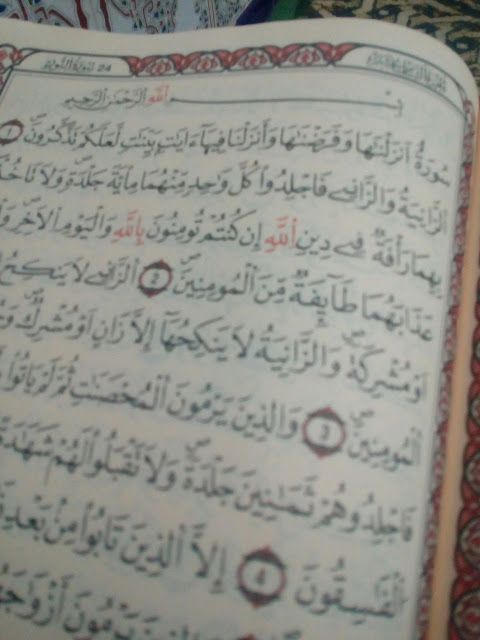 24 سورة النور
بِسْمِ اللَّهِ الرَّحْمَٰنِ الرَّحِيمِ
سُورَةٌ اَنزَلْنَٰهَا وَفَرَضْنَٰهَا وَأَنزَلْنَا فِيهَآ ءَايَٰتِۢ بَيِّنَٰتٖ لَّعَلَّكُمْ تَذَّكَّرُونَ 1
اَلزَّانِيَةُ وَالزَّانِے فَاجْلِدُواْ كُلَّ وَٰحِدٖ مِّنْهُمَا مِاْيَةَ جَلْدَةٖ وَلَا تَاخُذْ
بِهِمَا رَأْفَةٞ فِے دِينِ اِللَّهِ إِن كُنتُمْ تُومِنُونَ بِاللَّهِ وَالْيَوْمِ اِلَاخِرِ
عَذَابَهُمَا طَآئِفَةٞ مِّنَ اَلْمُومِنِينَ 2 اَلزَّانِے لَا يَنكِحُ
اَوْ مُشْرِكَةٗ وَالزَّانِيَةُ لَا يَنكِحُهَآ إِلَّا زَانٍ اَوْ مُشْرِكٞ
اَلْمُومِنِينَ 3 وَالذِينَ يَرْمُونَ اَلْمُحْصَنَٰتِ ثُمَّ لَمْ يَاتُواْ
فَاجْلِدُوهُمْ ثَمَٰنِينَ جَلْدَةٗ وَلَا تَقْبَلُواْ لَهُمْ شَهَٰدَةً
اَلْفَٰسِقُونَ 4 إِلَّا اَلذِينَ تَابُواْ مِنۢ بَعْدِ
يَرْمُونَ أَزْوَٰجَهُمْ